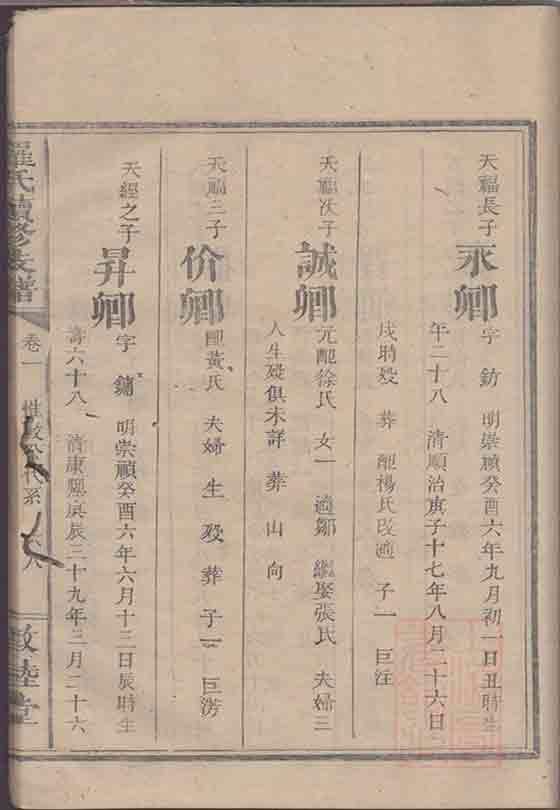 天福長子
永卿 字鈁 明崇禎癸酉六年九月初一日丑時生
年二十八 清順治庚子十七年八月二十六日
戌時歿 葬 配楊氏改適 子一 巨注
天福次子
誠卿 元配徐氏 女一 適鄒 繼娶張氏 夫婦三
人生歿俱未詳 葬 山 向
天福三子
价卿 配黃氏 夫婦 生 歿 葬 子一 巨涝
天經之子
昇卿 字鏞 明崇禎癸酉六年六月十三日辰時生
壽六十八 清康熙庚辰三十九年三月二十六
羅氏續修支譜 卷一 惟 公代系 敦睦堂